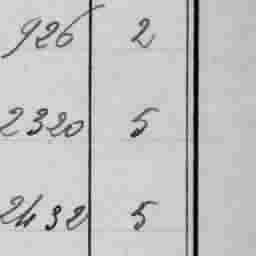 926 2
2320 5
2432 5